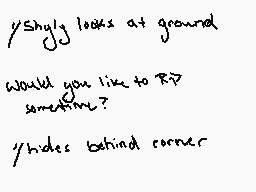 //Shyly looks at ground
would you like to RP
sometime?
//hides behind corner